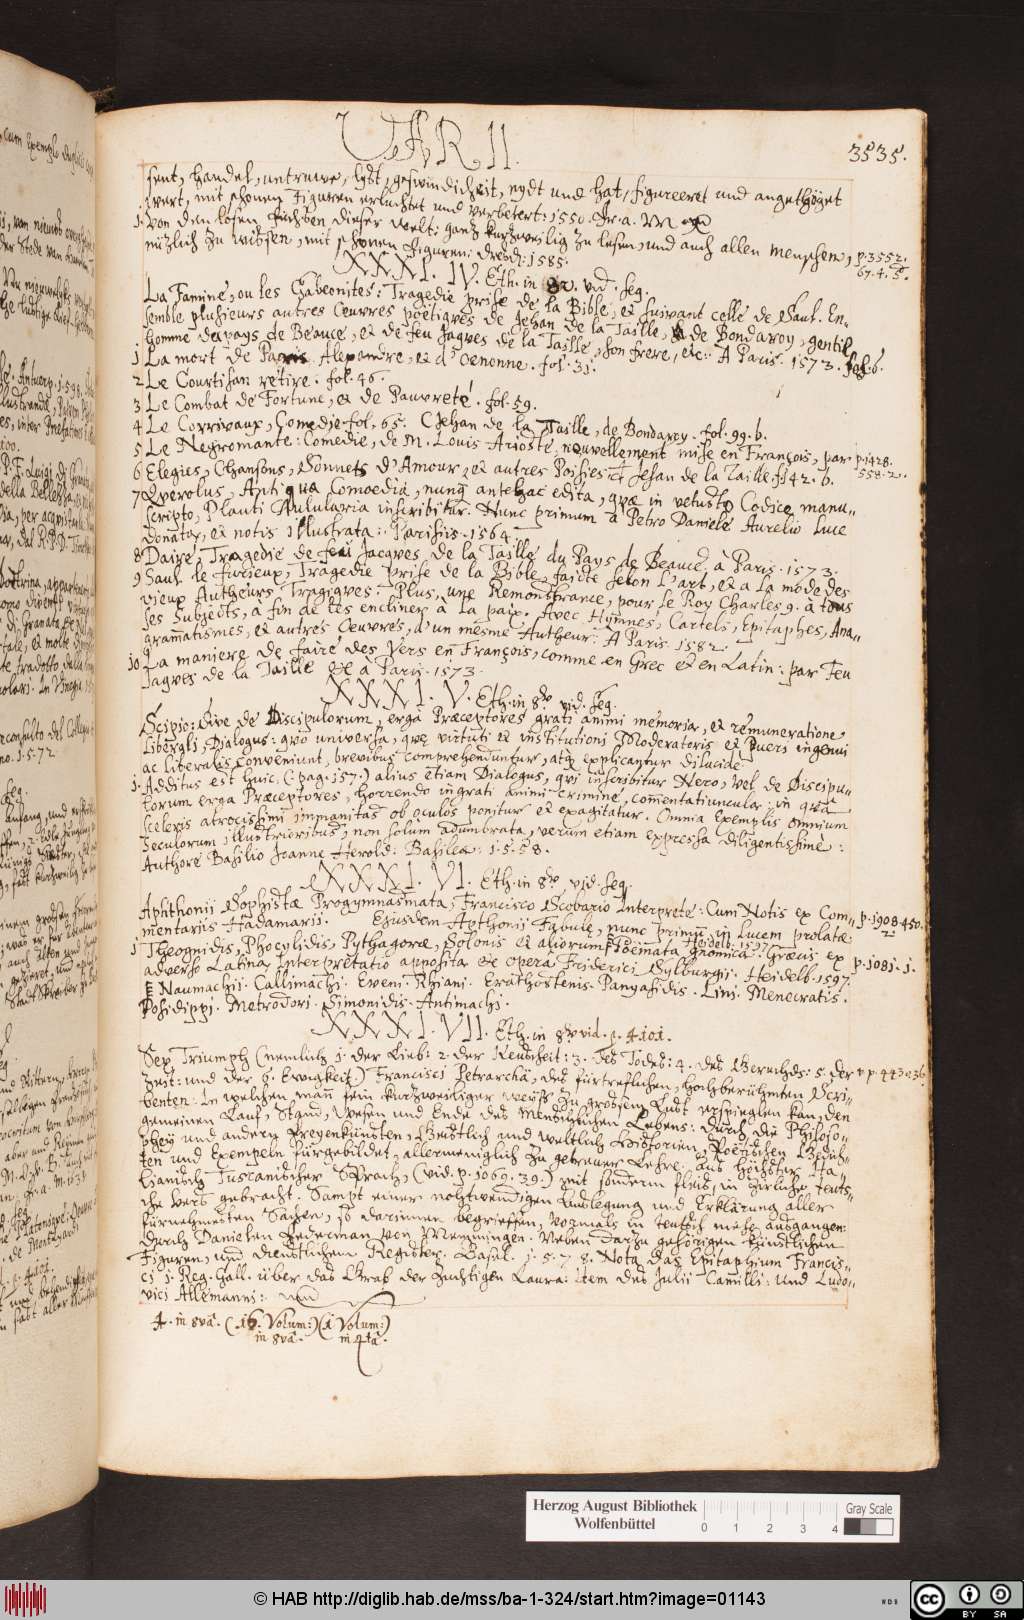 VARII.
3535.
sent, handel, untruwe, lydt, geswindicheit, nydt und hat, figureeret und angethöget
wert, mit schonen Figuren erluchtet und verbetert: 1550. Fr. a. M
1. Von den losen Füchsen dieser welt: gantz kurtzweilig zu lesen, und auch allen menschen,
nützlich zu wissen, mit schönen Figuren: Dresd: 1585.
p. 3552.
67. 4. 5.
XXXI. IV. Eth. in 8o. vid. seg.
La Famine, ou les Gabeonites: Tragedie prise de la Bible, et suivant celle de Saul. En-
semble plusieurs autres Œuvres poëtiques de Jehan de la Taille, de Bondaroy, gentil-
homme du pays de Beauce, et de feu Jaques de la Taille, son frere, etc: A Paris. 1573. fol. 6.
1 La mort de Paris Alexandre, et d'Oenonne. fol. 31.
2 Le Courtisan retire. fol. 46.
3 Le Combat de Fortune, et de Pauvreté. fol. 59.
4 Le Corrivaux, Comedie fol. 65. Jehan de la Taille, de Bondaroy. fol. 99. b.
5 Le Negromante: Comedie, de M. Louis Arioste, nouvellement mise en François, par
6 Elegies, Chansons, Sonnets d'Amour, et autres Poisies: Jehan de la Taille. f. 142. b.
p. 1428.
558. 2.
7 Querolus, Antiqua Comoedia, nunq antehac edita, quæ in vetusto Codice manu-
scripto, Plauti Aulularia inscribitur. Nunc primum a Petro Daniele Aurelio Luce
donata, et notis illustrata: Parisiis. 1564.
8 Daire, Tragedie de feu Jacques de la Taille du Pays de Beauce, à Paris. 1573.
9 Saul le furieux, Tragedie prise de la Bible, faicte selon l'art, et a la mode des
vieux Autheurs Tragiques: Plus, une Remonstrance, pour le Roy Charles 9. à tous
ses Subjects, a fin de les encliner a la paix. Avec Hymnes, Cartels, Epitaphes, Ana-
gramatismes, et autres Œuvres, d'un mesme Autheur: A Paris 1582.
10 La maniere de faire des Vers en François, comme en Grec et en Latin: par Feu
Jaques de la Taille &c a Paris. 1573.
XXXI. V. Eth. in 8vo vid. seg.
Scipio: sive de Discipulorum, erga Præceptores grati animi memoria, et remuneratione
liberali, Dialogus: quo universa, quę virtuti et institutioni Moderatoris et pueri ingenui
ac liberalis conveniunt, brevibus comprehenduntur, atq explicantur dilucide
1. Additus est huic (: pag. 157.) alius etiam Dialogus, qui inscribitur Nero, vel de Discipu-
lorum erga Præceptores, horrendo ingrati animi crimine, comentatiuncula: in qua
sceleris atrocissimi immanitas ob oculos ponitur et exagitatur. Omnia Exemplis omnium
seculorum illustrioribus, non solum adumbrata, verum etiam expressa diligentissimè:
Authore Basilio Joanne Herold: Basileæ: 1.5.58.
XXXI. VI. Eth. in 8vo vid. seg.
Aphthonii Sophistæ Progymnasmata, Francisco Scobario Interprete: Cum Notis ex Com-
mentariis Hadamarii. Ejusdem Apthonii Fabulę, nunc primū in lucem prolatæ
Heidelb: 1597.
p. 1908 450.
1 Theognidis, Phocylidis, Pythagoræ, Solonis et aliorum Poemata gnomica: Græcis ex
adverso Latina Interpretatio apposita &c opera Friderici Sylburgii. Heidelb. 1597.
p. 1081. 1.
Naumachii. Callimachi. Eveni. Rhiani. Erathostenis. Panyasidis. Lini. Menecratis.
Posidippi. Metrodori. Simonidis. Antimachi.
XXXI. VII. Eth. in 8vo vid. p. 4101.
Sex Triumph (nemlich 1. der Lieb: 2. der Keuscheit: 3. des Todes: 4. des Gerüchds: 5. der
Zeit: und der 6. Ewigkeit) Francisci Petrarchä, des fürtreflichen, hochberühmten Scri-
p. 443. 36
benten: In welchen, man fein kurtzweiliger weyß zu grossem Lust erspieglen kan, den
gemeinen Lauf, Stand, Wesen und Ende des Menschlichen Lebens: durch die Philoso-
phey und andern Freyenkünsten, Geistlich und weltlich Historien, Poetischen Gedich-
ten und Exempeln fürgebildet, allermeniglich zu getreuer Lehre. aus höchster Ita-
lianisch Tuscanischer Sprach, (vid. p. 1069. 39.) mit sonderm fleiß, in zirliche teuts-
che Vers gebracht. Sampt einer nohtwendigen Auslegung und Erklärung aller
fürnehmesten Sachen, so darinnen begrieffen, vormals in teutsch nicht ausgangen:
durch Danielen Federman von Memmingen. Neben darzu gehörigen künstlichen
Figuren, und dienstlichem Register. Basel. 1.5.7.8. Nota das Epitaphium Francis-
ci 1. Reg. Gall. über das Grab der züchtigen Laura: item des Julii Camilli: und Ludo-
vici Allemanni:
4. in 8vâ. (16. Volum:) (1 Volum:)
in 8vâ. in 4tâ.
Herzog August Bibliothek
Wolfenbüttel
0 1 2 3 4
Gray Scale
© HAB http://diglib.hab.de/mss/ba-1-324/start.htm?image=01143
WDB
cc BY SA